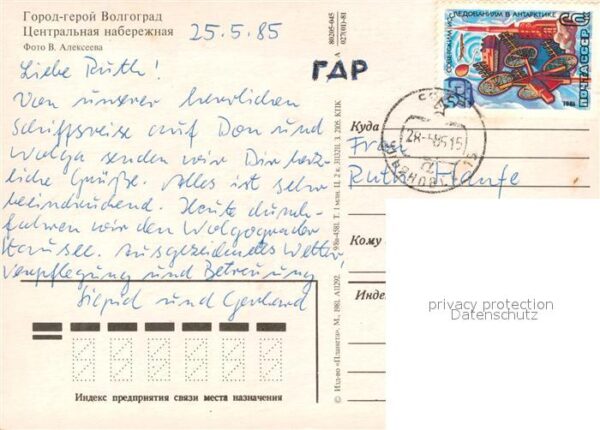 Город-герой Волгоград
Центральная набережная
Фото В. Алексеева
25.5.85
Liebe Ruth!
Von unserer herrlichen
Schiffsreise auf Don und
Wolga senden wir Dir herz-
liche Grüße. Alles ist sehr
beeindruckend. Heute durch-
fahren wir den Wolgograder
Stausee. Ausgezeichnetes Wetter,
Verpflegung und Betreuung
Sigrid und Gerhard
ГДР
Куда
Frau
Ruth Haufe
Кому
Индекс
privacy protection
Datenschutz
Индекс предприятия связи места назначения
80205-045
027(01)-81
© Изд-во «Планета», М., 1981, А11292.
ПОЧТА СССР
1981